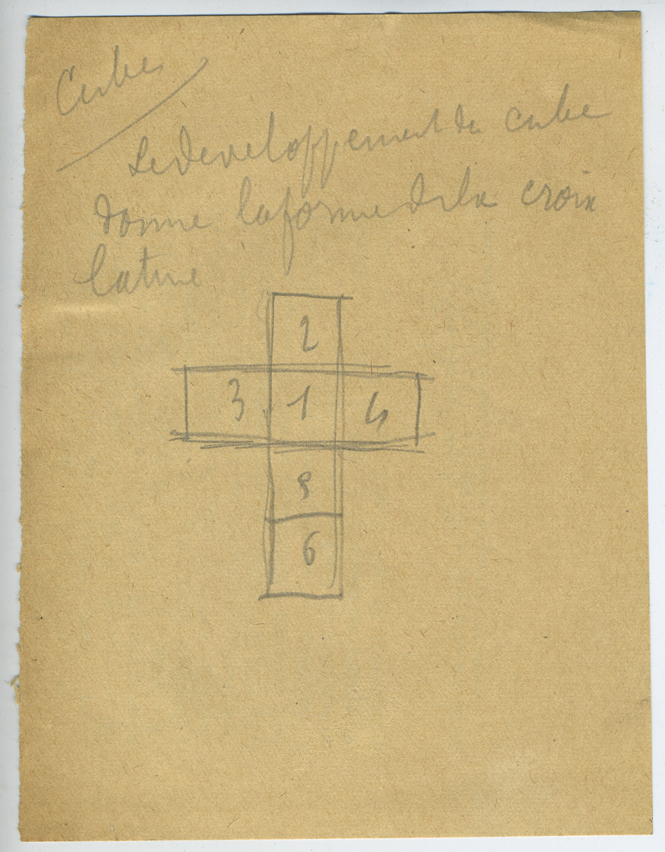 Cube
Le developpement du cube
donne la forme de la croix
latine
2
3 1 4
5
6